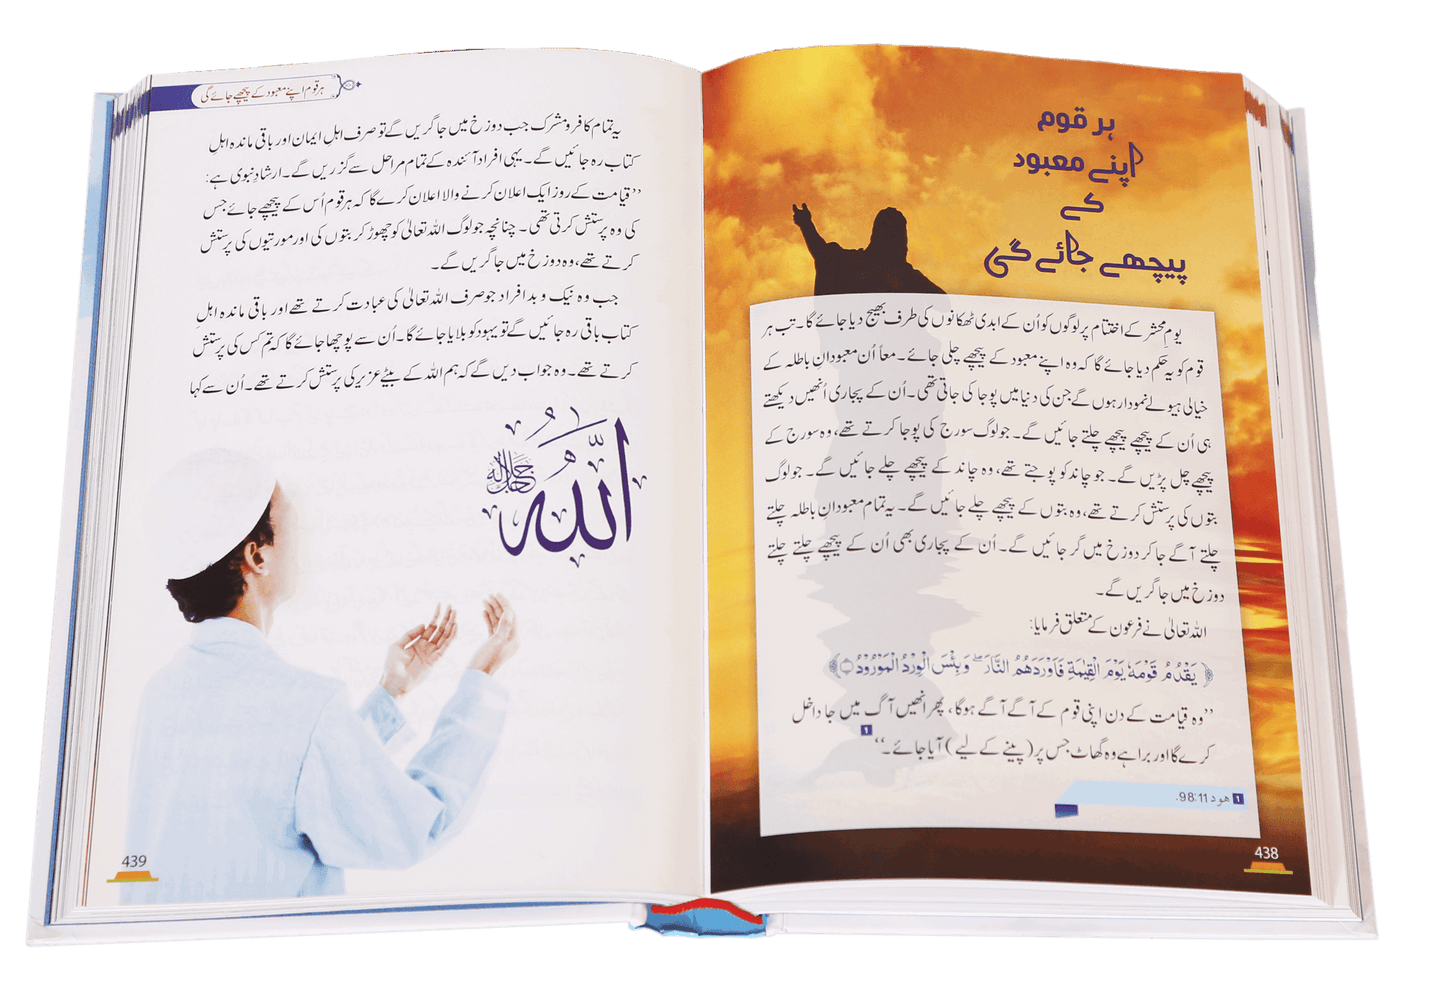 ہر قوم
اپنے معبود
کے
پیچھے جائے گی
یومِ محشر کے اختتام پر لوگوں کو اُن کے ابدی ٹھکانوں کی طرف بھیج دیا جائے گا۔ تب ہر
قوم کو یہ حکم دیا جائے گا کہ وہ اپنے معبود کے پیچھے چلی جائے۔ معاً اُن معبودانِ باطلہ کے
خیالی ہیولے نمودار ہوں گے جن کی دنیا میں پوجا کی جاتی تھی۔ اُن کے پجاری اُنھیں دیکھتے
ہی اُن کے پیچھے پیچھے چلتے جائیں گے۔ جو لوگ سورج کی پوجا کرتے تھے، وہ سورج کے
پیچھے چل پڑیں گے۔ جو چاند کو پوجتے تھے، وہ چاند کے پیچھے چلے جائیں گے۔ جو لوگ
بتوں کی پرستش کرتے تھے، وہ بتوں کے پیچھے چلے جائیں گے۔ یہ تمام معبودانِ باطلہ چلتے
چلتے آگے جا کر دوزخ میں گر جائیں گے۔ اُن کے پجاری بھی اُن کے پیچھے چلتے چلتے
دوزخ میں جا گریں گے۔
اللہ تعالیٰ نے فرعون کے متعلق فرمایا:
﴿ يَقْدُمُ قَوْمَهٗ يَوْمَ الْقِيٰمَةِ فَاَوْرَدَهُمُ النَّارَ ؕ وَبِئْسَ الْوِرْدُ الْمَوْرُوْدُ ۝ ﴾
’’وہ قیامت کے دن اپنی قوم کے آگے آگے ہوگا، پھر انھیں آگ میں جا داخل
کرے گا اور برا ہے وہ گھاٹ جس پر (پینے کے لیے) آیا جائے۔‘‘ 1
1 هود 98:11.
438
ہر قوم اپنے معبود کے پیچھے جائے گی
یہ تمام کافر و مشرک جب دوزخ میں جا گریں گے تو صرف اہلِ ایمان اور باقی ماندہ اہلِ
کتاب رہ جائیں گے۔ یہی افراد آئندہ کے تمام مراحل سے گزریں گے۔ ارشادِ نبوی ہے:
’’قیامت کے روز ایک اعلان کرنے والا اعلان کرے گا کہ ہر قوم اُس کے پیچھے جائے جس
کی وہ پرستش کرتی تھی۔ چنانچہ جو لوگ اللہ تعالیٰ کو چھوڑ کر بتوں کی اور مورتیوں کی پرستش
کرتے تھے، وہ دوزخ میں جا گریں گے۔
جب وہ نیک و بد افراد جو صرف اللہ تعالیٰ کی عبادت کرتے تھے اور باقی ماندہ اہلِ
کتاب باقی رہ جائیں گے تو یہود کو بلایا جائے گا۔ اُن سے پوچھا جائے گا کہ تم کس کی پرستش
کرتے تھے۔ وہ جواب دیں گے کہ ہم اللہ کے بیٹے عزیر کی پرستش کرتے تھے۔ اُن سے کہا
اللّٰه جل جلاله
439